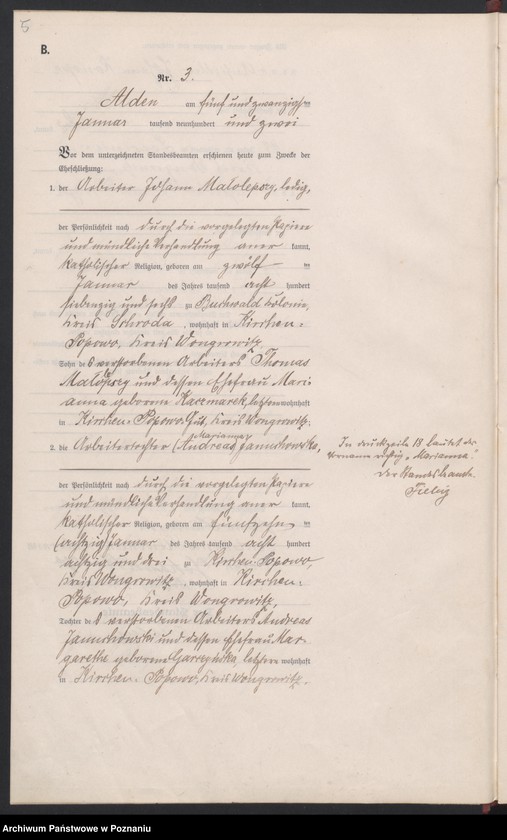 5
B.
Nr. 3.
Alden am fünf und zwanzigsten
Januar tausend neunhundert und zwei
Vor dem unterzeichneten Standesbeamten erschienen heute zum Zwecke der
Eheschließung:
1. der Arbeiter Johann Małolepszy, ledig,
der Persönlichkeit nach durch die vorgelegten Papiere
und mündliche Verhandlung aner kannt,
katholischer Religion, geboren am zwölf ten
Januar des Jahres tausend acht hundert
siebenzig und sechs zu Buchwald Kolonie,
Kreis Schroda, wohnhaft in Kirchen-
Popowo, Kreis Wongrowitz,
Sohn des verstorbenen Arbeiters Thomas
und dessen Ehefrau Mari-
anna geborene Kaczmarek, letztere wohnhaft
in Kirchen-Popowo Gut, Kreis Wongrowitz.
Marianna
2. die Arbeitertochter (Andreas) Januchowska,
In Druckzeile 18 lautet der
Vorname richtig „Marianna“.
Der Standesbeamte
der Persönlichkeit nach durch die vorgelegten Papiere
und mündliche Verhandlung aner kannt,
katholischer Religion, geboren am fünfzehn ten
(achtzig) Januar des Jahres tausend acht hundert
achtzig und drei zu Kirchen-Popowo,
Kreis Wongrowitz, wohnhaft in Kirchen-
Popowo, Kreis Wongrowitz,
Tochter des verstorbenen Arbeiters Andreas
Januchowski und dessen Ehefrau Mar-
garethe geborene letztere wohnhaft
in Kirchen-Popowo, Kreis Wongrowitz.
Archiwum Państwowe w Poznaniu